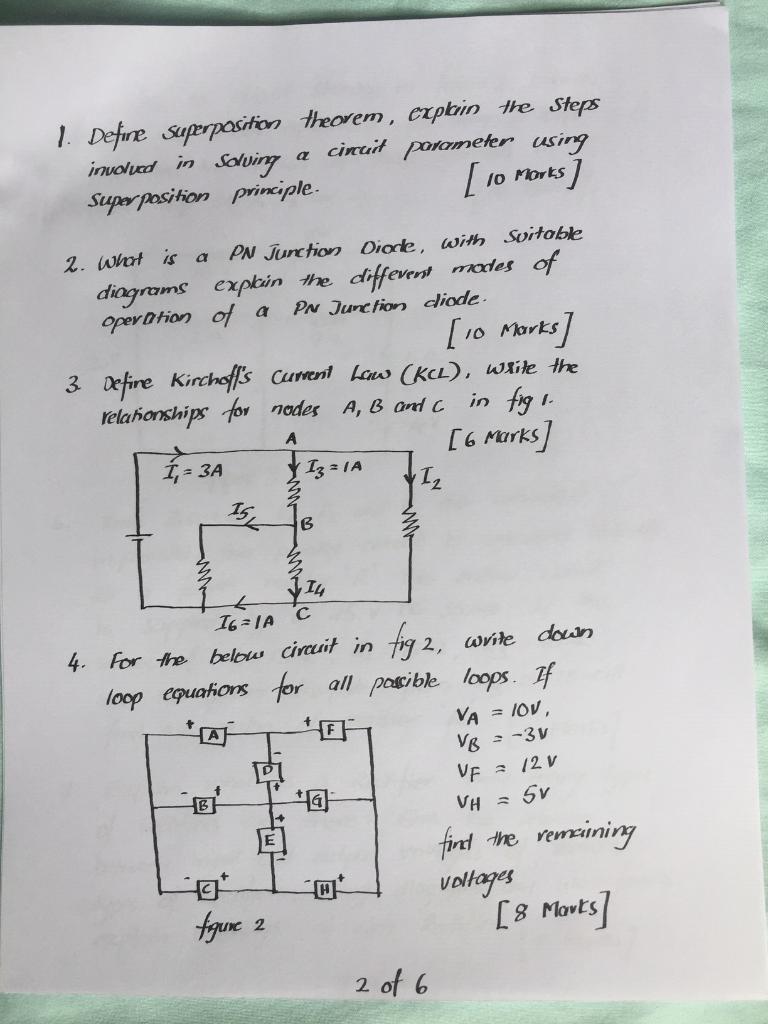 1. Define superposition theorem, explain the steps
involved in solving a circuit parameter using
superposition principle. [10 Marks]
2. What is a PN Junction Diode, with suitable
diagrams explain the different modes of
operation of a PN Junction diode.
[10 Marks]
3. Define Kirchoff's Current Law (KCL), write the
relationships for nodes A, B and C in fig 1.
[6 Marks]
A
I1 = 3A
I3 = 1A
I2
I5
B
I4
I6 = 1A
C
4. For the below circuit in fig 2, write down
loop equations for all possible loops. If
VA = 10V,
VB = -3V
VF = 12V
VH = 5V
find the remaining
voltages
[8 Marks]
+ A -
+ F -
-
D
+
- B +
+ G
+
E
-
- C +
- H +
figure 2
2 of 6